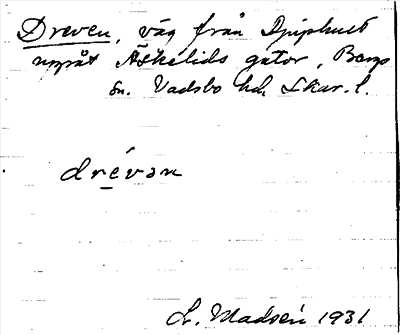 Dreven, väg från Djiphult
uppåt Äskelids gator, Berga
sn. Vadsbo hd. Skar. l.
drévan
L. Madsén 1931